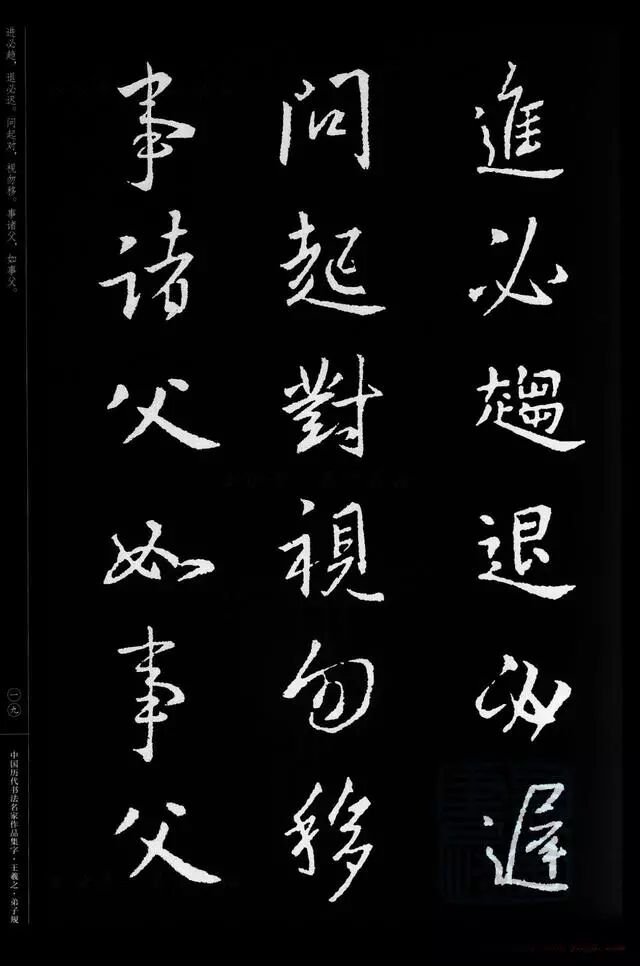 進必趨退必遲
問起對視勿移
事諸父如事父
进必趋，退必迟。问起对，视勿移。事诸父，如事父。
一九
中国历代书法名家作品集字·王羲之·弟子规